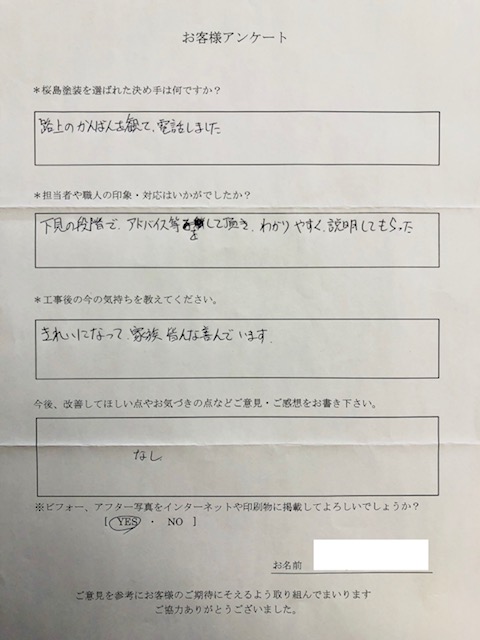 お客様アンケート
＊桜島塗装を選ばれた決め手は何ですか？
路上のかんばんを観て、電話しました
＊担当者や職人の印象・対応はいかがでしたか？
下見の段階で、アドバイス等をして頂き、わかりやすく、説明してもらった
＊工事後の今の気持ちを教えてください。
きれいになって、家族皆んな喜んでいます。
今後、改善してほしい点やお気づきの点などご意見・ご感想をお書き下さい。
なし
※ビフォー、アフター写真をインターネットや印刷物に掲載してよろしいでしょうか？
[ YES ・ NO ]
お名前
ご意見を参考にお客様のご期待にそえるよう取り組んでまいります
ご協力ありがとうございました。